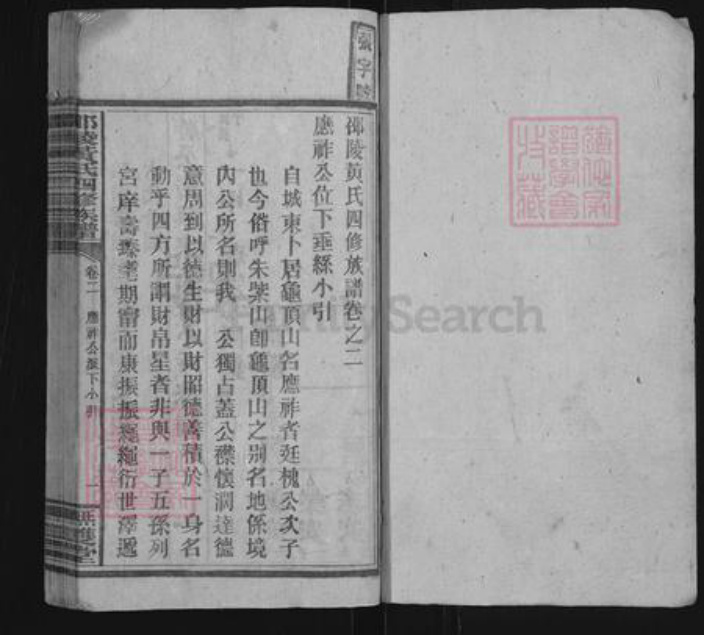 張字
邵陵黃氏四修族譜卷之二
應祚公位下垂絲小引
自城東卜居龜頂山名應祚者廷槐公次子
也今俗呼朱紫山卽龜頂山之別名地係境
內公所名則我 公獨占蓋公襟懷濶達德
意周到以德生財以財昭德善積於一身名
動乎四方所謂財帛星者非與一子五孫列
宮庠壽臻耄期甯而康振振繩繩衍世澤遞
邵陵黃氏四修族譜
卷二 應祚公派下小引
一
FamilySearch